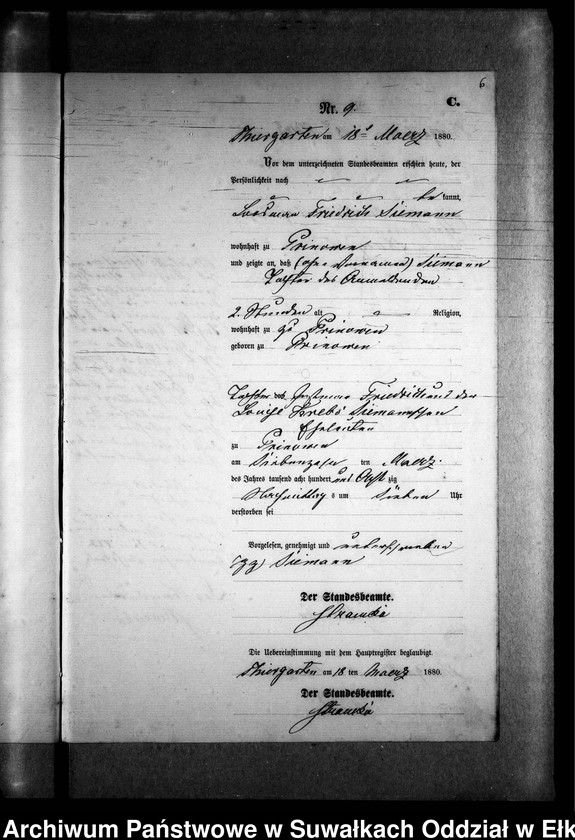 6
C.
Nr. 9.
Thiergarten am 18t Maerz 1880.
Vor dem unterzeichneten Standesbeamten erschien heute, der
Persönlichkeit nach
be kannt,
Losmann Friedrich Siemann
wohnhaft zu Prinowen
und zeigte an, daß (ohne Vornamen) Siemann
Tochter des Anmeldenden
2. Stunden alt Religion,
wohnhaft zu zu Prinowen
geboren zu Prinowen
Tochter des Friedrich und der
Louise Krebs Siemannschen
Eheleuten
zu Prinowen
am Siebenzehn ten Maerz
des Jahres tausend acht hundert und Acht zig
Nachmittag s um Sieben Uhr
verstorben sei
Vorgelesen, genehmigt und unterschrieben
gez) Siemann
Der Standesbeamte.
Die Uebereinstimmung mit dem Hauptregister beglaubigt.
Thiergarten am 18 ten Maerz 1880.
Der Standesbeamte.
Archiwum Państwowe w Suwałkach Oddział w Ełk